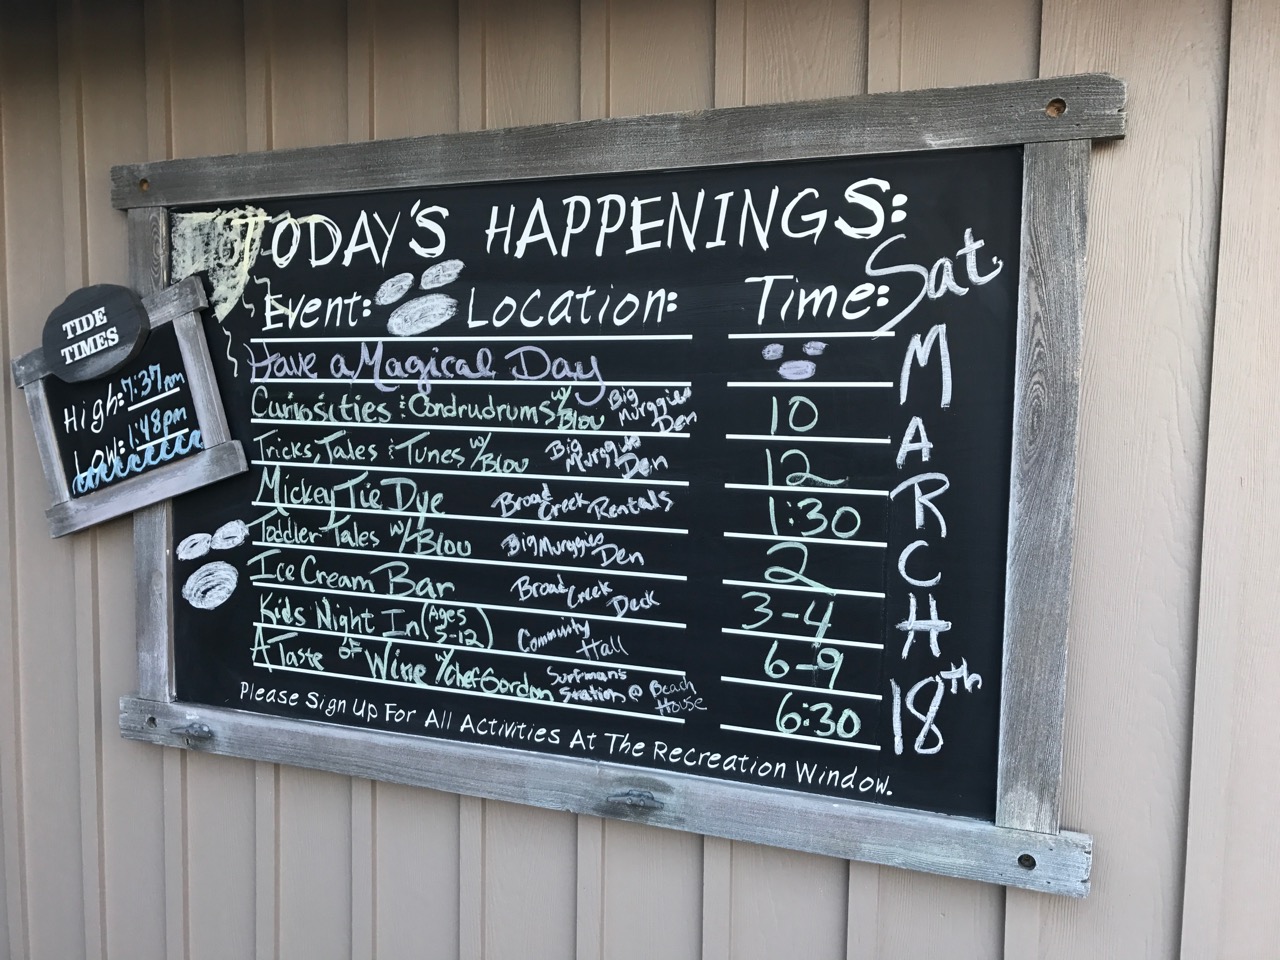 TODAY'S HAPPENINGS:
Event: Location: Time: Sat.
Have a Magical Day
Curiosities & Condrudrums w/ Blou Big Murggies Den 10
Tricks, Tales & Tunes w/ Blou Big Murggies Den 12
Mickey Tie Dye Broad Creek Rentals 1:30
Toddler Tales w/ Blou Big Murggies Den 2
Ice Cream Bar Broad Creek Deck 3-4
Kids Night In (Ages 5-12) Community Hall 6-9
A Taste of Wine w/ Chef Gordon Surfman's Station @ Beach House 6:30
Please Sign Up For All Activities At The Recreation Window.
MARCH
18th
TIDE
TIMES
High: 7:37
Low: 1:48pm